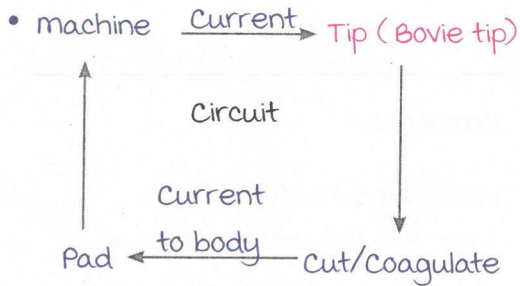 • machine Current Tip (Bovie tip)
Circuit
Current
to body
Pad Cut/Coagulate